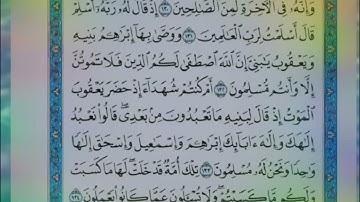 وَإِنَّهُۥ فِى ٱلْءَاخِرَةِ لَمِنَ ٱلصَّٰلِحِينَ ١٣٠ إِذْ قَالَ لَهُۥ رَبُّهُۥٓ أَسْلِمْ
قَالَ أَسْلَمْتُ لِرَبِّ ٱلْعَٰلَمِينَ ١٣١ وَوَصَّىٰ بِهَآ إِبْرَٰهِۦمُ بَنِيهِ
وَيَعْقُوبُ يَٰبَنِىَّ إِنَّ ٱللَّهَ ٱصْطَفَىٰ لَكُمُ ٱلدِّينَ فَلَا تَمُوتُنَّ
إِلَّا وَأَنتُم مُّسْلِمُونَ ١٣٢ أَمْ كُنتُمْ شُهَدَآءَ إِذْ حَضَرَ يَعْقُوبَ
ٱلْمَوْتُ إِذْ قَالَ لِبَنِيهِ مَا تَعْبُدُونَ مِنۢ بَعْدِى قَالُوا۟ نَعْبُدُ
إِلَٰهَكَ وَإِلَٰهَ ءَابَآئِكَ إِبْرَٰهِۦمَ وَإِسْمَٰعِيلَ وَإِسْحَٰقَ إِلَٰهًا
وَٰحِدًا وَنَحْنُ لَهُۥ مُسْلِمُونَ ١٣٣ تِلْكَ أُمَّةٌ قَدْ خَلَتْ لَهَا مَا كَسَبَتْ
وَلَكُم مَّا كَسَبْتُمْ وَلَا تُسْـَٔلُونَ عَمَّا كَانُوا۟ يَعْمَلُونَ ١٣٤